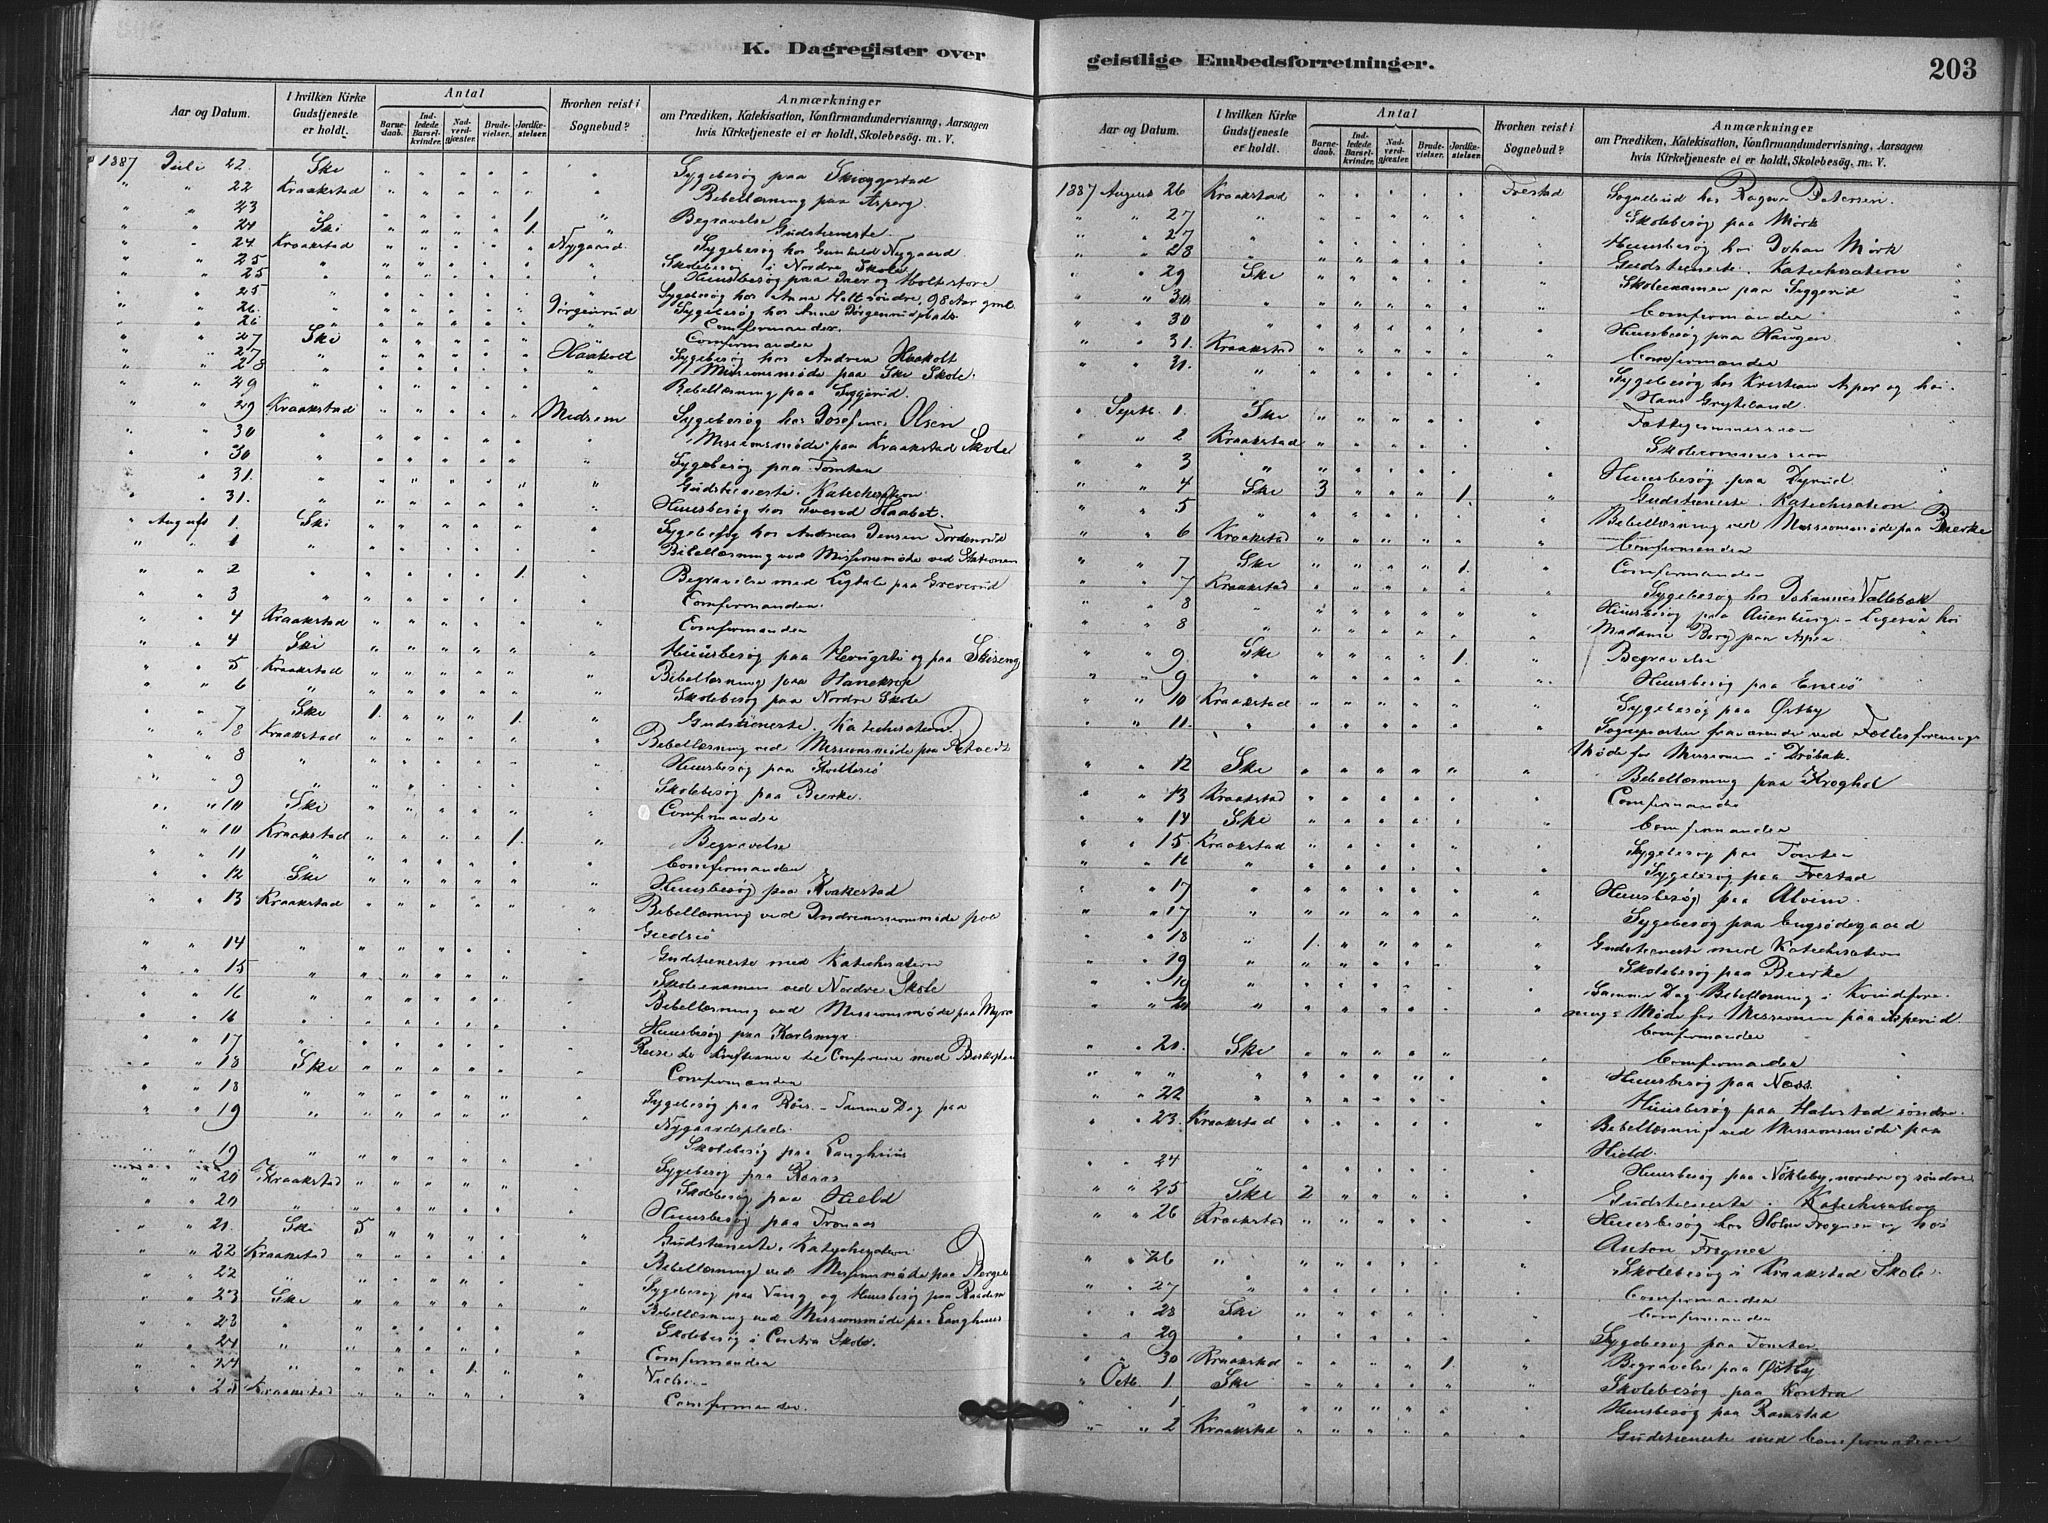 K. Dagregister over
Aar og Datum.
I hvilken Kirke Gudstjeneste er holdt.
Antal
Barnedaab.
Indledede Barselkvinder.
Nadverdgjæster.
Brudevielser.
Jordfæstelser.
Hvorhen reist i Sognebud?
Anmærkninger
om Prædiken, Katekisation, Konfirmandundervisning, Aarsagen
hvis Kirketjeneste ei er holdt, Skolebesög. m. V.
1887 Juli 22. Ski " " " " " " Sygebesøg paa Skoggestad
" " 22 Kraakstad " " " " " " Bibellæsning paa Asperg.
" " 23 " " " " " 1. " Begravelse
" " 24 Ski " " " " 1. " Gudstieneste
" " 24 Kraakstad " " " " " Nygaard Sygebesøg hos Gunhild Nygaard
" " 25 " " " " " " " Skolebesøg i Nordre Skole
" " 25 " " " " " " " Huusbesøg paa Iver og Holtestore
" " 25 " " " " " " " Sygebesøg hos Anne Holt søndre, 98 Aar gml
" " 26 " " " " " " Jørgenrud Sygebesøg hos Anne Jørgenrudplads
" " 26 " " " " " " " Comfirmander.
" " 27 Ski " " " " " " Comfirmander
" " 27 " " " " " " Haakolt Sygebesøg hos Andrea Haakolt
" " 28 " " " " " " " Missionsmøde paa Ski Skole.
" " 29 " " " " " " " Bibellæsning paa Siggerud.
" " 29 Kraakstad " " " " " Midsem Sygebesøg hos Josefine Olsen
" " 30 " " " " " " " Missionsmøde paa Kraakstad Skole
" " 30 " " " " " " " Sygebesøg paa Tomten
" " 31 " " " " " " " Gudstieneste. Katechisation
" " 31. " " " " " " " Huusbesøg hos Svend Haabet.
" August 1. Ski " " " " " " Sygebesøg hos Andreas Jensen Tordenrud
" " 1 " " " " " " " Bibellæsning ved Missionsmøde ved Stationen
" " 2 " " " " " 1. " Begravelse med Ligtale paa Greverud
" " 3 " " " " " " " Comfirmander.
" " 4 Kraakstad " " " " " " Comfirmander
" " 4 Ski " " " " " " Huusbesøg paa Haugsti og paa Skiseng
" " 5 Kraakstad " " " " " " Bibellæsning paa Hanekrop
" " 6 " " " " " " " Skolebesøg paa Nordre Skole
" " 7 Ski 1. " " " 1. " Gudstieneste. Katechisation
" " 8 Kraakstad " " " " " " Bibellæsning ved Missionsmøde paa Retvedt
" " 8 " " " " " " " Huusbesøg paa Kvittesiø
" " 9 " " " " " " " Skolebesøg paa Bierke.
" " 10 Ski " " " " " " Comfirmander
" " 10 Kraakstad " " " " 1. " Begravelse
" " 11 " " " " " " " Comfirmander
" " 12 Ski " " " " " " Huusbesøg paa Kvakestad
" " 13 Kraakstad " " " " " " Bibellæsning ved Indremissionsmøde paa
Giedsiø
" " 14 " " " " " " " Gudstieneste med Katechisation
" " 15 " " " " " " " Skoleexamen ved Nordre Skole
" " 16 " " " " " " " Bibellæsning ved Missionsmøde paa Myra
" " 16 " " " " " " " Huusbesøg paa Karlsmyr.
" " 17 " " " " " " " Reise til Kristiania til Conference med Biskopen
" " 18 Ski " " " " " " Comfirmander
" " 18 " " " " " " " Sygebesøg paa Røis - Samme Dag paa
" " 19 " " " " " " " Nygaardsplads.
" " 19 " " " " " " " Skolebesøg paa Langhuus
" " 20 Kraakstad " " " " " " Sygebesøg paa Raaas
" " 20 " " " " " " " Skolebesøg paa Hield
Huusbesøg paa Tronaas
" " 21. Ski 5 " " " " " Gudstieneste. Katechisation
" " 22 Kraakstad " " " " " " Bibellæsning ved Missionsmøde paa
" " 22 " " " " " " " Sygebesøg paa Vang og Huusbesøg paa Raaden
" " 23 Ski " " " " " " Bibellæsning ved Missionsmøde paa Langhuus
" " 23 " " " " " " " Skolebesøg i Contra Skole.
" " 24 " " " " " " " Comfirmander
" " 24 " " " " 1. " " Vielse
" " 25 Kraakstad " " " " " " Comfirmander.
geistlige Embedsforretninger.
203
Aar og Datum.
I hvilken Kirke Gudstjeneste er holdt.
Antal
Barnedaab.
Indledede Barselkvinder.
Nadverdgjæster.
Brudevielser.
Jordfæstelser
Hvorhen reist i Sognebud?
Anmærkninger
om Prædiken, Katekisation, Konfirmandundervisning, Aarsagen
hvis Kirketjeneste ei er holdt, Skolebesög. m. V.
1887 August 26 Kraakstad " " " " " Frestad Sognebud hos Ragna Petersen.
" " 27 " " " " " " " Skolebesøg paa Mørk
" " 27 " " " " " " " Huusbesøg hos Johan Mørk
" " 28 " " " " " " " Gudstieneste. Katechisation
" " 29 Ski " " " " " " Skoleexamen paa Siggerud
" " 30 " " " " " " " Comfirmander
" " 30 " " " " " " " Huusbesøg paa Haugen
" " 31. Kraakstad " " " " " " Comfirmander
" " 31. " " " " " " " Sygebesøg hos Kristian Asper og hos
Hans Gryteland.
" Septb. 1. Ski " " " " " " Fattigcommission
" " 2 Kraakstad " " " " " " Skolecommission
" " 3 " " " " " " " Huusbesøg paa Dyrud
" " 4 Ski 3 " " " 1. " Gudstieneste. Katechisation
" " 5 " " " " " " " Bibellæsning ved Missionsmøde paa Bierke
" " 6 Kraakstad " " " " " " Comfirmander
" " 7 Ski " " " " 1. " Comfirmander
" " 7 Kraakstad " " " " " " Sygebesøg hos Johannes Vallebæk
" " 8 " " " " " " " Huusbesøg paa Auenburg - Ligesaa hos
" " 8 " " " " " " " Madame Berg paa Aspaa
" " 9 Ski " " " " 1. " Begravelse
" " 9 " " " " " " " Huusbesøg paa Ensiø
" " 10 Kraakstad " " " " " " Sygebesøg paa Østby
" " 11. " " " " " " " Sognepresten fraværende ved Fællesforenings
Møde for Missionen i Drøbak.
" " 12 Ski " " " " " " Bibellæsning paa Kroghol
" " 13 Kraakstad " " " " " " Comfirmander
" " 14 Ski " " " " " " Comfirmander
" " 15. Kraakstad " " " " " " Sygebesøg paa Tomten
" " 16 " " " " " " " Sygebesøg paa Frestad
" " 17 " " " " " " " Huusbesøg paa Alvim
" " 17 " " " " " " " Sygebesøg paa Engsødegaard
" " 18 " 1. " " " " " Gudstieneste med Katechisation
" " 19 " " " " " " " Skolebesøg paa Bierke
" " 19 " " " " " " " Samme Dag Bibellæsning i Kvindefore
nings Møde for Missionen paa Asperud
" " 20 " " " " " " " Comfirmander
" " 21. Ski " " " " " " Comfirmander
" " " " " " " " " " Huusbesøg paa Næss.
" " 22 " " " " " " " Huusbesøg paa Halvstad søndre.
" " 23. Kraakstad " " " " " " Bibellæsning ved Missionsmøde paa
Hield.
" " 24 " " " " " " " Huusbesøg paa Nøkleby, nordre og søndre
" " 25 Ski 2 " " " " " Gudstieneste. Katechisation
" " 26 Kraakstad " " " " " " Huusbesøg hos Holm Frogner og hos
Anton Frogner
" " 26 " " " " " " " Skolebesøg i Kraakstad Skole
" " 27 " " " " " " " Comfirmander
" " 28 Ski " " " " " " Comfirmander
" " 29 " " " " " " " Sygebesøg paa Tomter
" " 30 Kraakstad " " " " 1. " Begravelse paa Østby
" Octb. 1 Ski " " " " " " Skolebesøg paa Kontra
" " 1. " " " " " " " Huusbesøg paa Ramstad
" " 2 Kraakstad " " " " " " Gudstieneste med Comfirmation